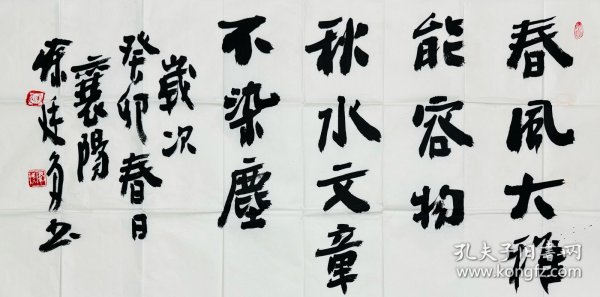 春风大雅
能容物
秋水文章
不染尘
歲次
癸卯春日
襄陽
孔夫子旧书网
www.kongfz.com